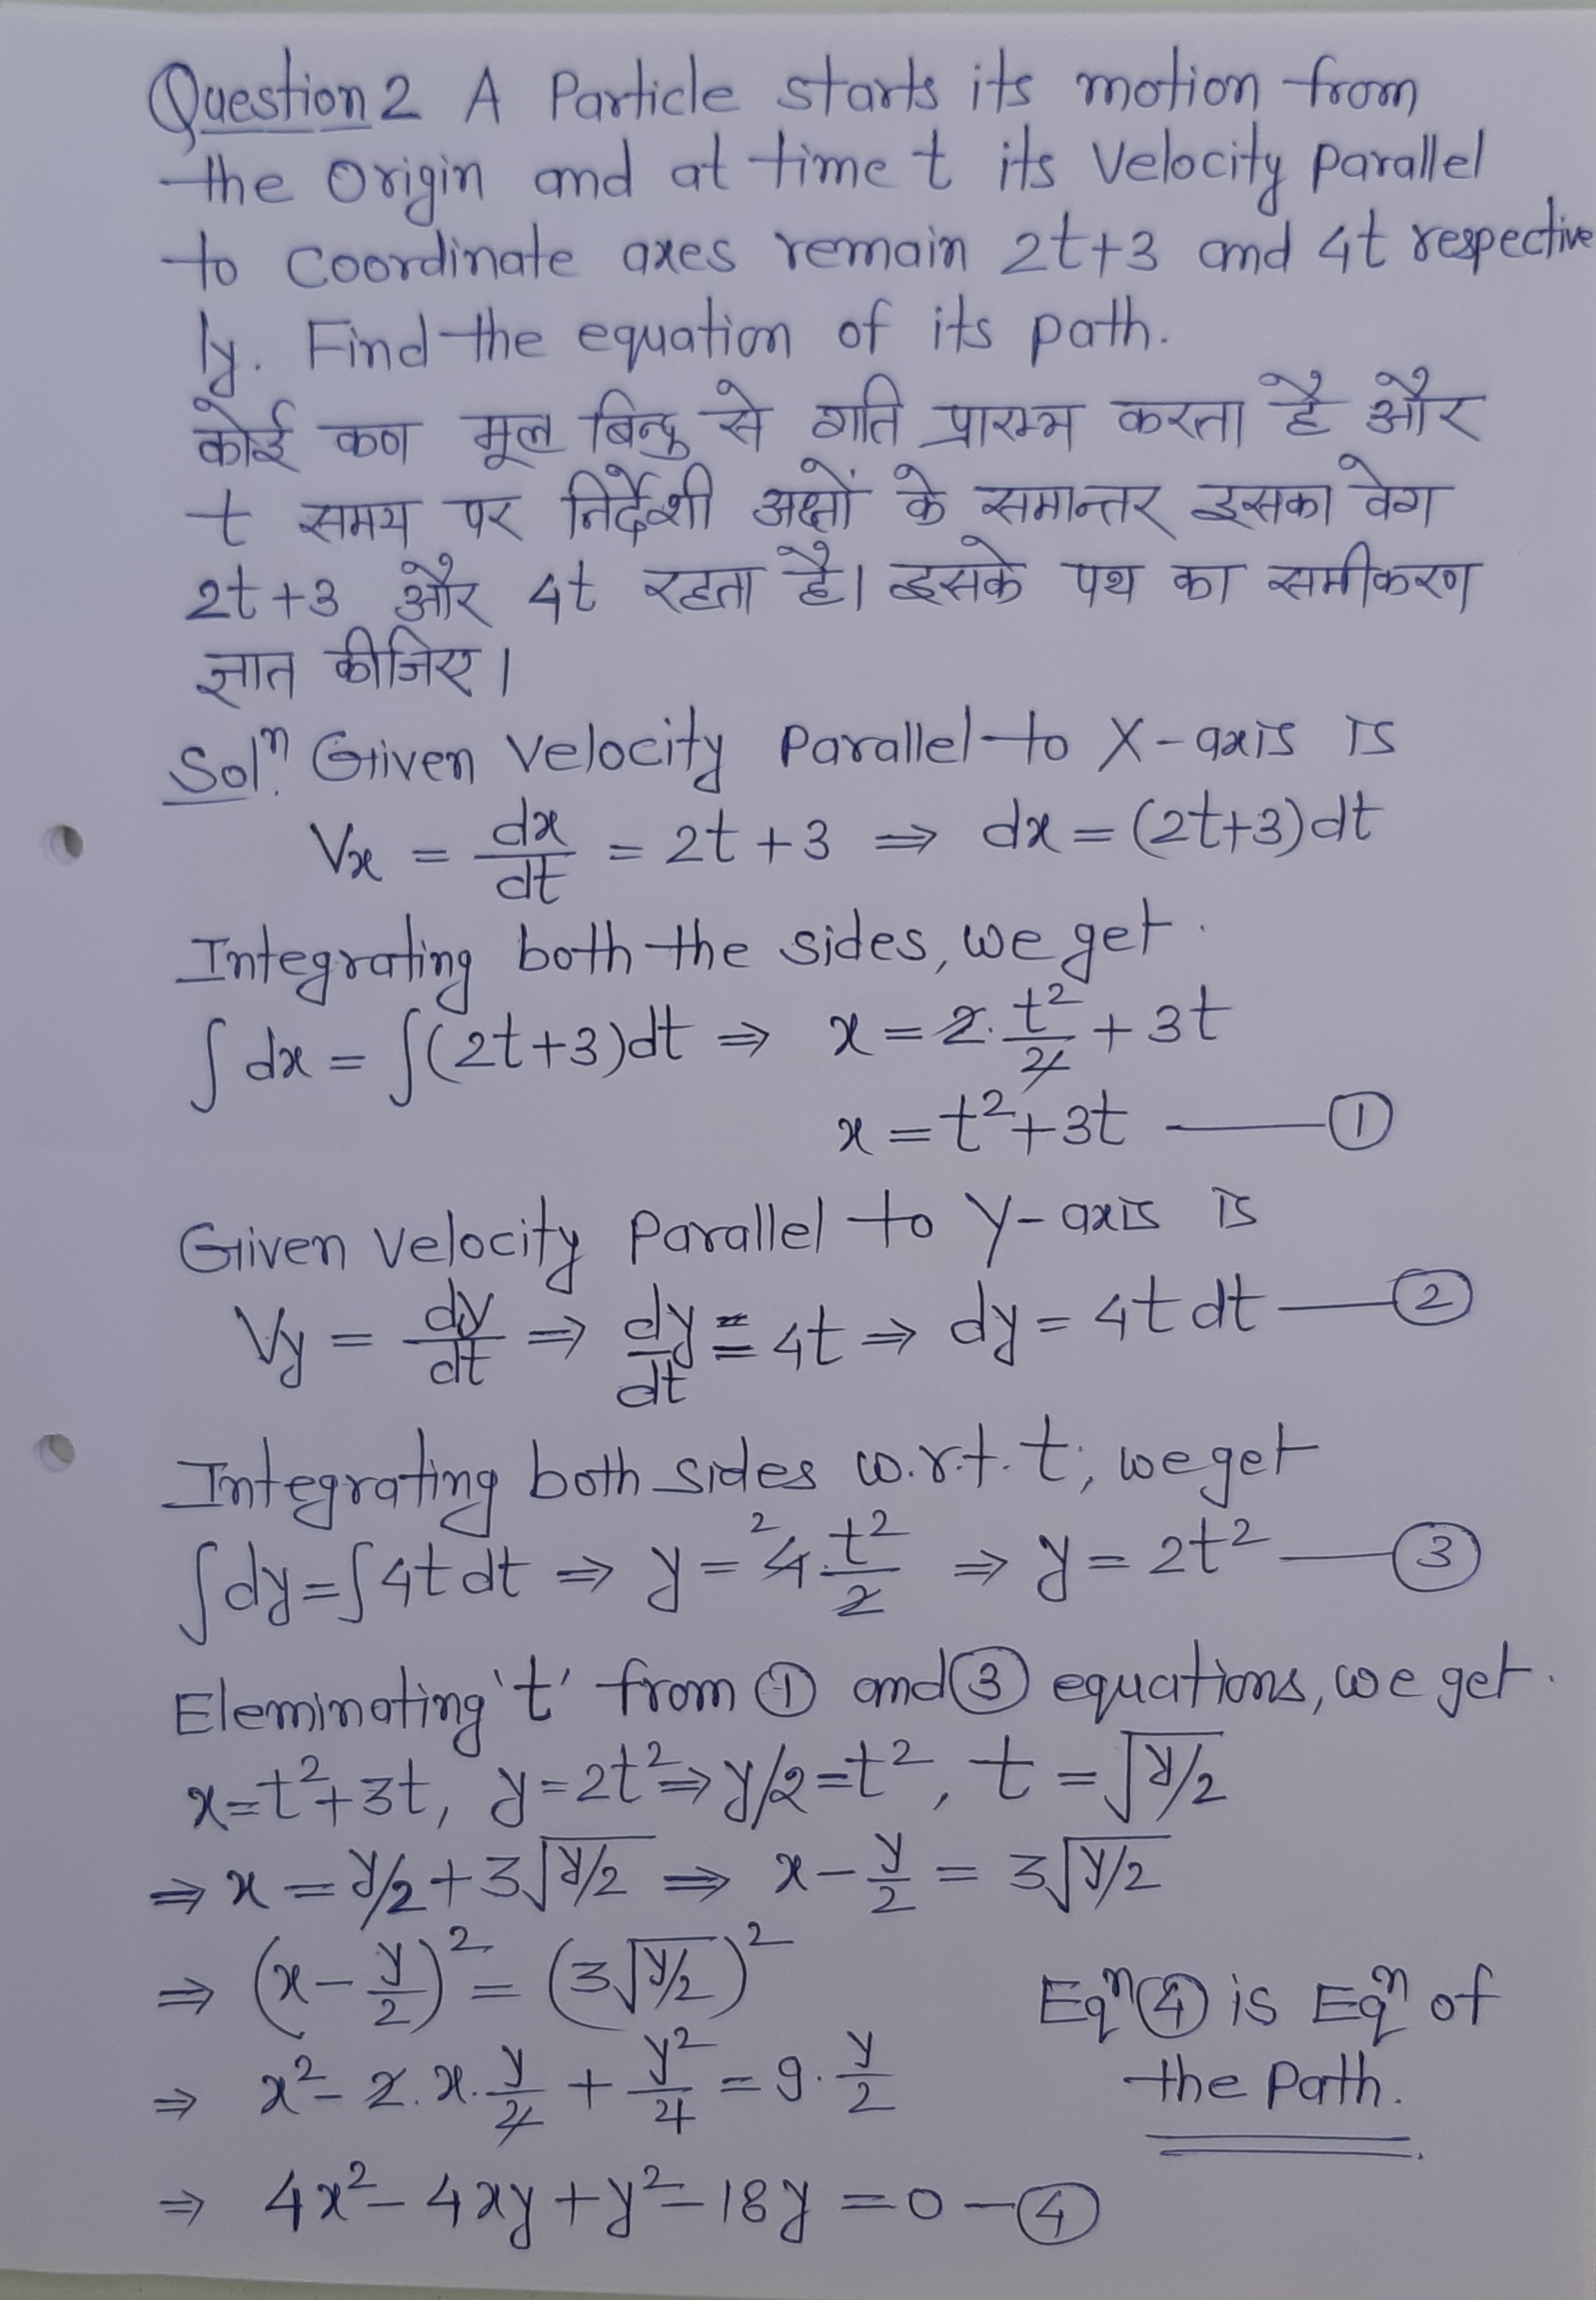 Question 2 A Particle starts its motion from
the origin and at time t its Velocity Parallel
to Coordinate axes remain 2t+3 and 4t respective
ly. Find the equation of its path.
कोई कण मूल बिन्दु से गति प्रारम्भ करता है और
t समय पर निर्देशी अक्षों के समान्तर इसका वेग
2t+3 और 4t रहता है। इसके पथ का समीकरण
ज्ञात कीजिए।
Solⁿ. Given Velocity Parallel to X-axis is
Vx = dx/dt = 2t+3 ⇒ dx = (2t+3)dt
Integrating both the sides, we get.
∫dx = ∫(2t+3)dt ⇒ x = 2.t²/2 + 3t
x = t²+3t —— ①
Given Velocity Parallel to Y-axis is
Vy = dy/dt ⇒ dy/dt = 4t ⇒ dy = 4t dt —— ②
Integrating both sides w.r.t. t, we get
∫dy = ∫4t dt ⇒ y = ²4.t²/2 ⇒ y = 2t² —— ③
Eleminating 't' from ① and ③ equations, we get.
x = t²+3t, y = 2t² ⇒ y/2 = t², t = √y/2
⇒ x = y/2 + 3√y/2 ⇒ x - y/2 = 3√y/2
⇒ (x - y/2)² = (3√y/2)²
⇒ x² - 2.x.y/2 + y²/4 = 9.y/2
⇒ 4x² - 4xy + y² - 18y = 0 - ④
Eqⁿ ④ is Eqⁿ of
the Path.